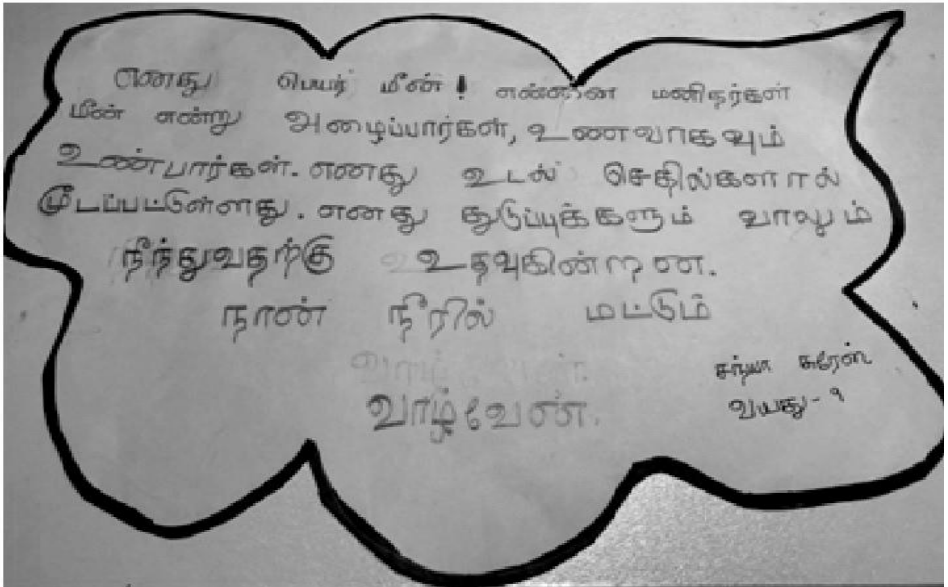 எனது பெயர் மீன்! என்னை மனிதர்கள்
மீன் என்று அழைப்பார்கள், உணவாகவும்
உண்பார்கள். எனது உடல் செதில்களால்
மூடப்பட்டுள்ளது. எனது துடுப்புக்களும் வாலும்
நீந்துவதற்கு உதவுகின்றன.
நான் நீரில் மட்டும்
வாழ்வேண்.
சந்யா சுரேஸ்
வயது - 9